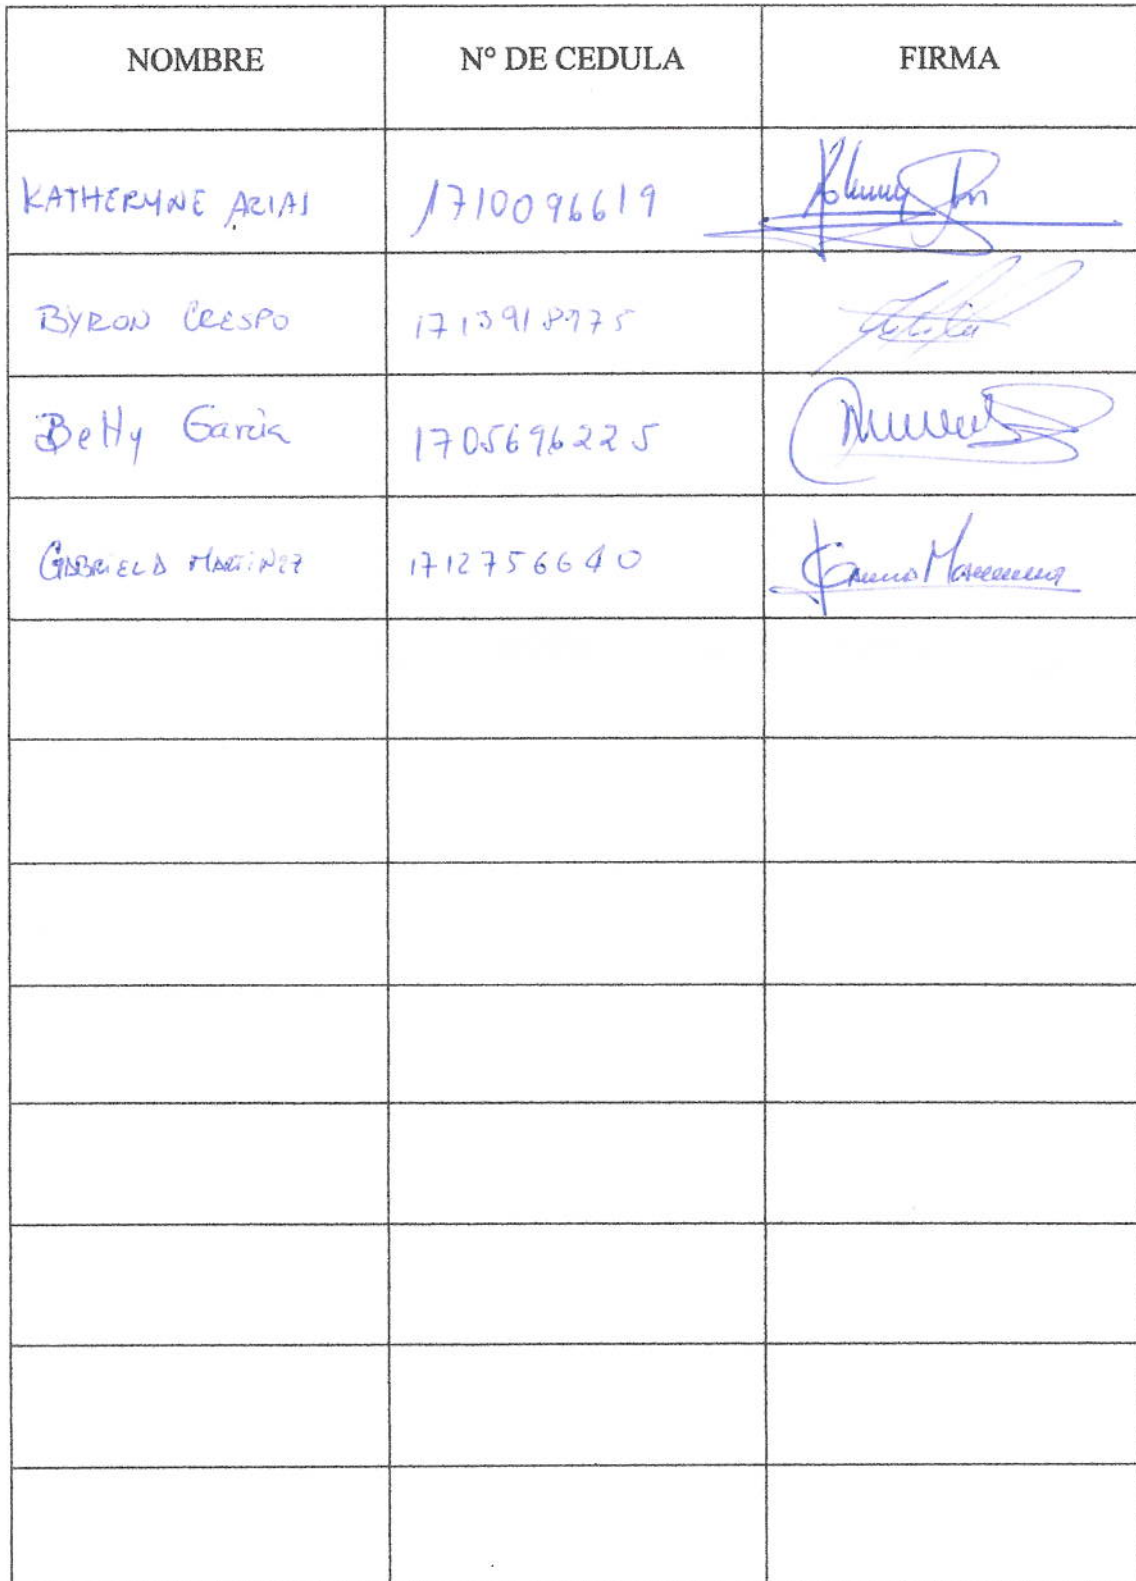 NOMBRE Nº DE CEDULA FIRMA
KATHERYNE ARIAS 1710096619
BYRON CRESPO
Betty García 1705696225
GABRIELA MARTINEZ 1712756640